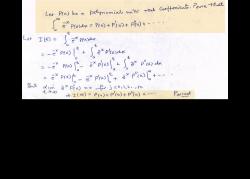 Let P(x) be a polynomial with real coefficients. Prove that
∫₀^∞ e^{-x} P(x) dx = P(0) + P'(0) + P''(0) + ......
Let I(t) = ∫₀^t e^{-x} P(x) dx
= -e^{-x} P(x) |₀^t + ∫₀^t e^{-x} P'(x) dx
= -e^{-x} P(x) |₀^t - e^{-x} P'(x) |₀^t + ∫₀^t e^{-x} P''(x) dx
= -e^{-x} P(x) |₀^t - e^{-x} P'(x) |₀^t - e^{-x} P''(x) |₀^t + ....
But
⇒ I(∞) = P(0) + P'(0) + P''(0) + ...... Proved